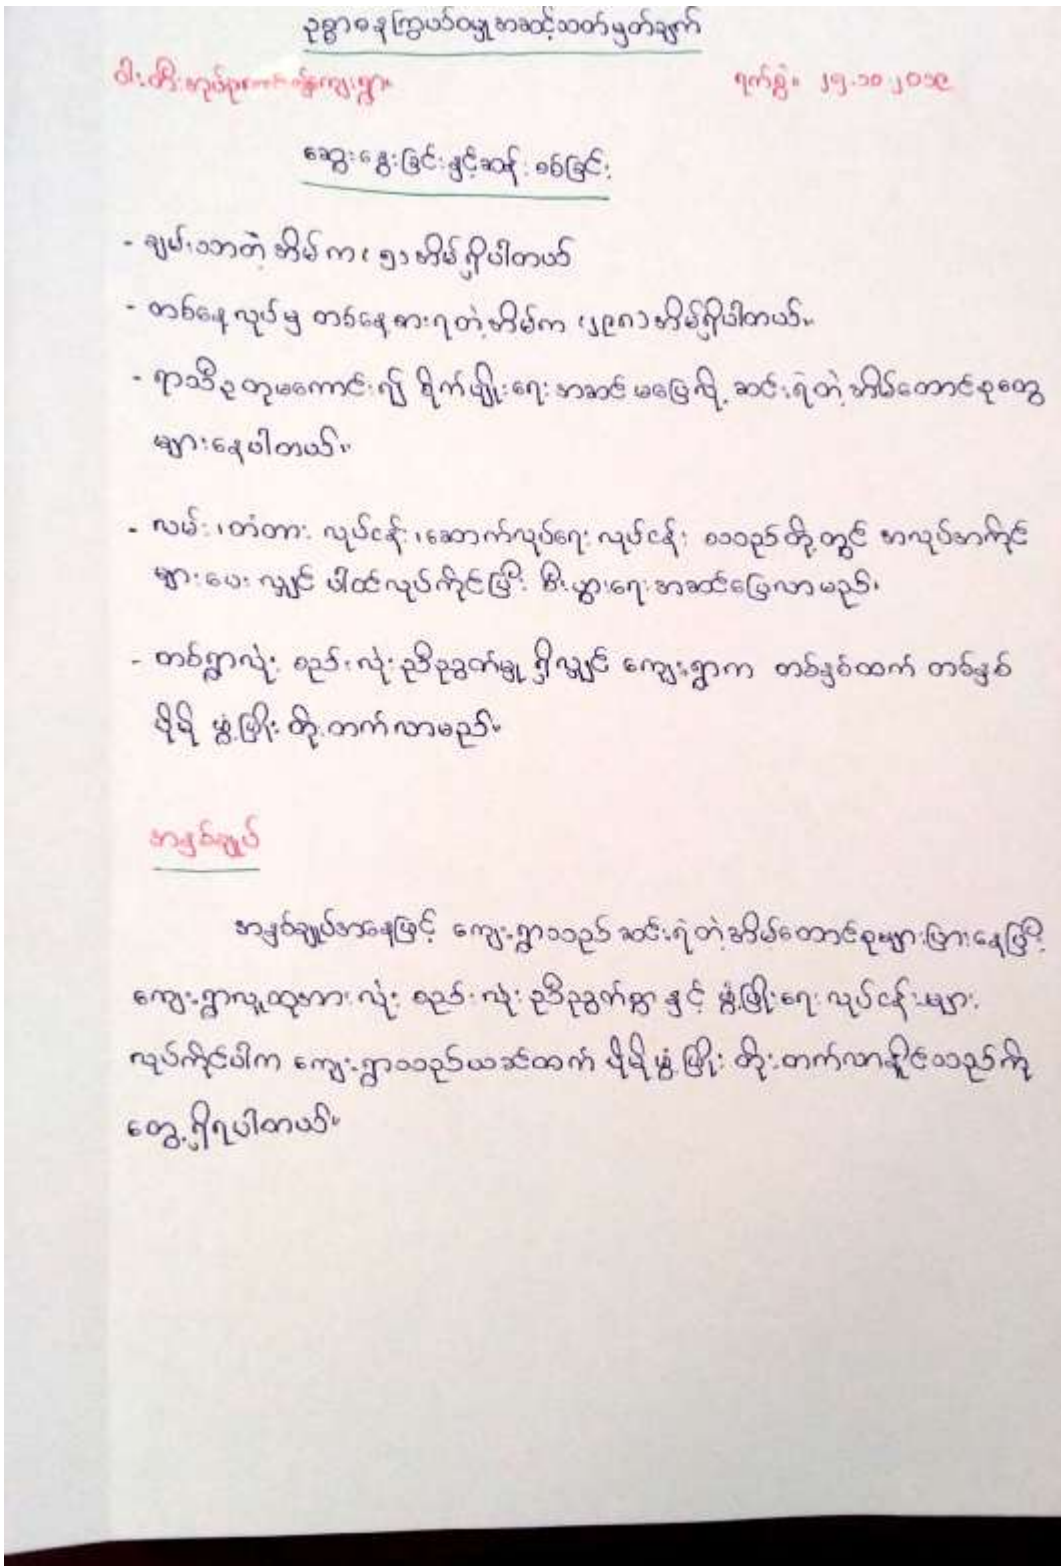 ဥစ္စာဓနကြွယ်ဝမှုအဆင့်သတ်မှတ်ချက်
ဝါးတီးအုပ်စု ကျေးရွာ ရက်စွဲ။ ၂၅.၁၀.၂၀၁၉
ဆွေးနွေးခြင်းနှင့်ဆန်းစစ်ခြင်း
- ချမ်းသာတဲ့အိမ်က (၅) အိမ်ရှိပါတယ်
- တစ်နေ့လုပ်မှ တစ်နေ့စားရတဲ့အိမ်က (၂၉၈) အိမ်ရှိပါတယ်။
- ရာသီဥတုမကောင်း၍ စိုက်ပျိုးရေး အဆင်မပြေလို့ ဆင်းရဲတဲ့အိမ်ထောင်စုတွေ
များနေပါတယ်။
- လမ်း၊တံတား လုပ်ငန်း၊ဆောက်လုပ်ရေးလုပ်ငန်း စသည်တို့တွင် အလုပ်အကိုင်
များပေးလျှင် ပါဝင်လုပ်ကိုင်ပြီး စီးပွားရေးအဆင်ပြေလာမည်။
- တစ်ရွာလုံး စည်းလုံးညီညွတ်မှု ရှိလျှင် ကျေးရွာက တစ်နှစ်ထက် တစ်နှစ်
ပိုမို ဖွံ့ဖြိုးတိုးတက်လာမည်။
အနှစ်ချုပ်
အနှစ်ချုပ်အနေဖြင့် ကျေးရွာသည် ဆင်းရဲတဲ့အိမ်ထောင်စုများပြားနေပြီး
ကျေးရွာလူထုအားလုံး စည်းလုံးညီညွတ်စွာ နှင့် ဖွံ့ဖြိုးရေးလုပ်ငန်းများ
လုပ်ကိုင်ပါက ကျေးရွာသည်ယခင်ထက် ပိုမိုဖွံ့ဖြိုး တိုးတက်လာနိုင်သည်ကို
တွေ့ရှိရပါတယ်။